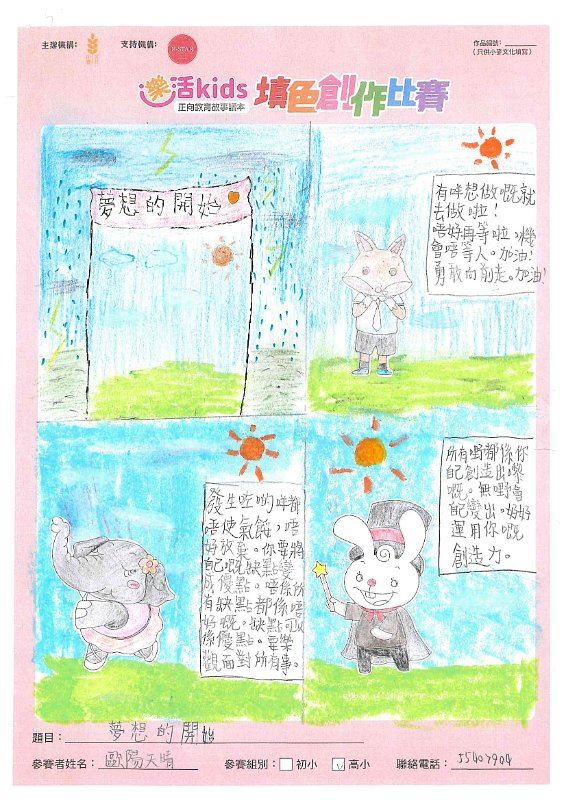 主辦機構：
支持機構：
作品編號：
(只供小麥文化填寫)
樂活kids
正向教育故事讀本
填色創作比賽
夢想的開始
有咩想做嘅就
去做啦！
唔好再等啦，機
會唔等人。加油！
勇敢向前走。加油！
發生咗啲咩都
唔使氣餒，唔
好放棄。你要將
自己嘅缺點變
成優點。唔係所
有缺點都係唔
好嘅。缺點可以
係優點。要樂
觀面對所有事。
所有嘢都係你
自己創造出嚟
嘅。無嘢會
自己變出。好好
運用你嘅
創造力。
題目：夢想的開始
參賽者姓名：歐陽天晴 參賽組別：初小 ✓高小 聯絡電話：55407904